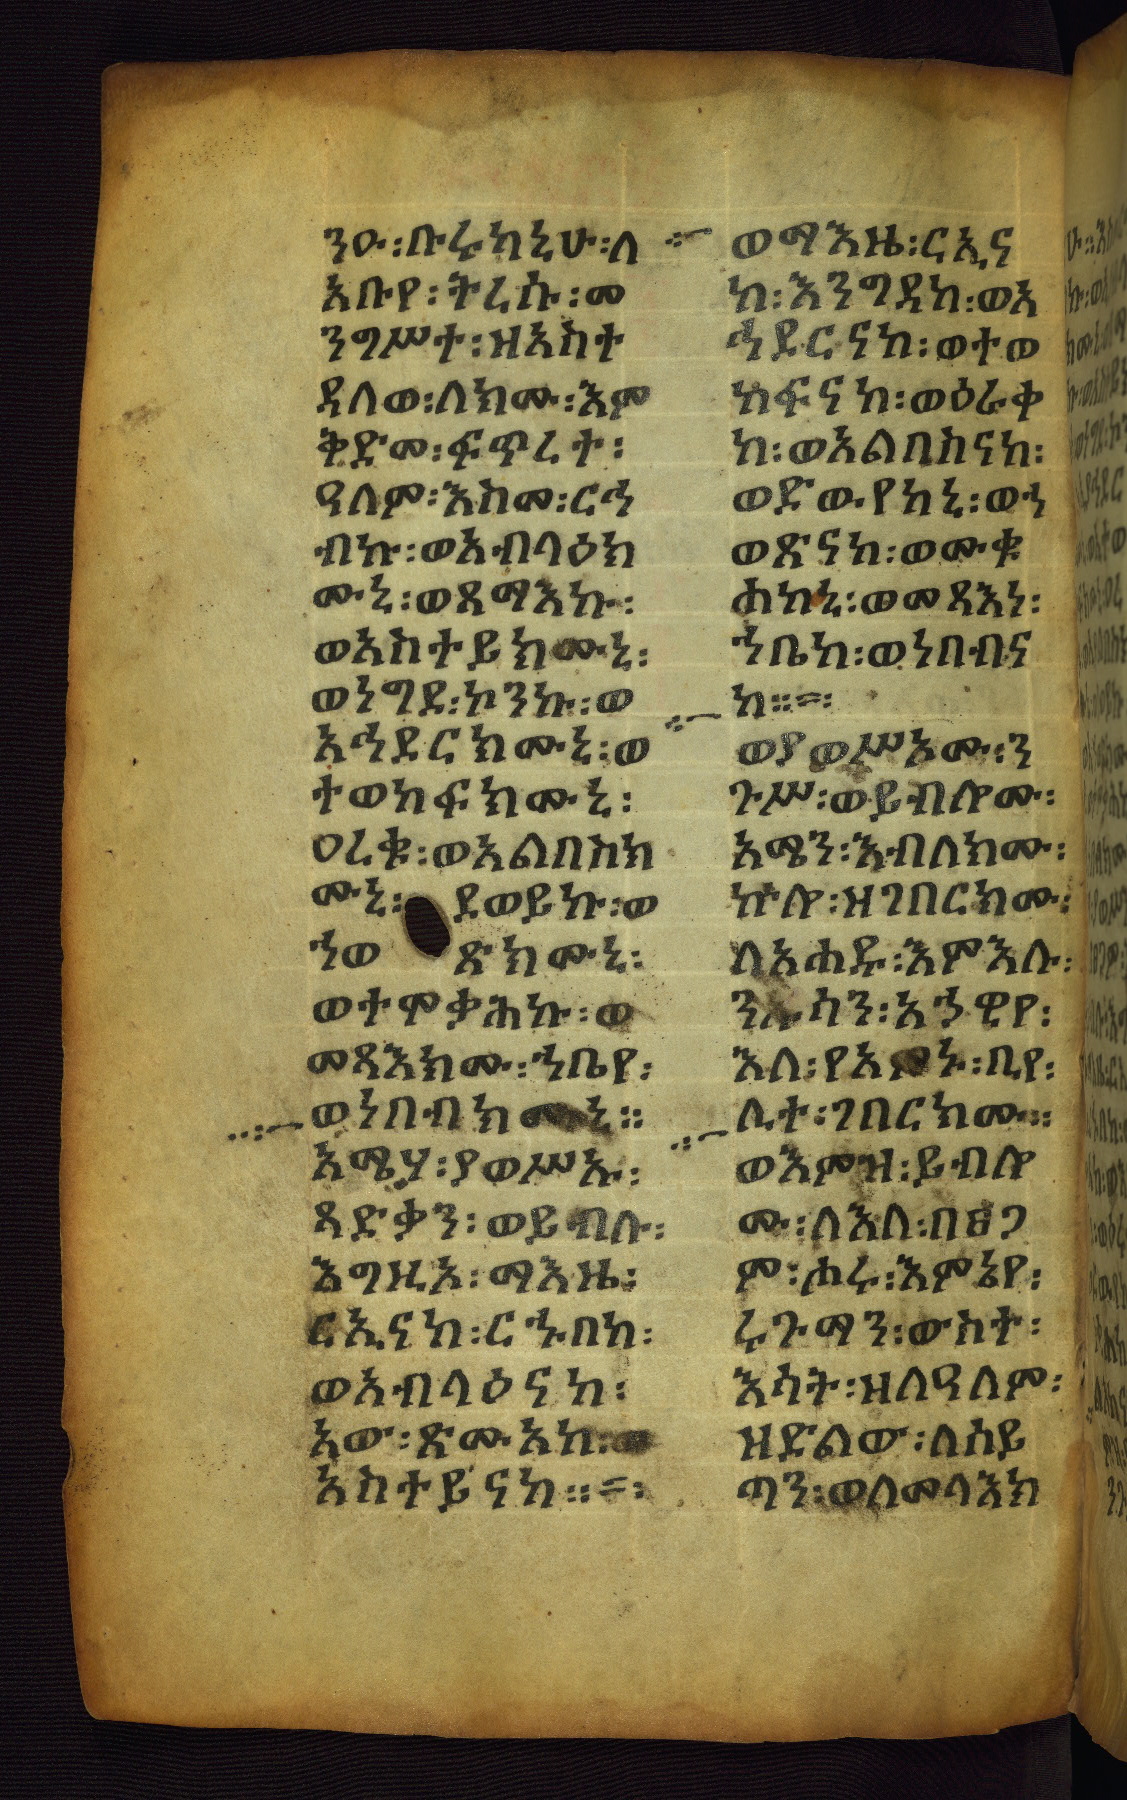 ንዑ፡ቡሩካኒሁ፡ለ
አቡየ፡ትረሱ፡መ
ንግሥተ፡ዘአስተ
ዳለወ፡ለክሙ፡እም
ቅድመ፡ፍጥረተ፡
ዓለም፡እስመ፡ርኅ
ብኩ፡ወአብላዕክ
ሙኒ፡ወጸማእኩ፡
ወአስተይክሙኒ፡
ወነግደ፡ኮንኩ፡ወ
አኅደርክሙኒ፡ወ
ተወከፍክሙኒ፡
ዐረቁ፡ወአልበስክ
ሙኒ፡ ደወይኩ፡ወ
ኀወ ጽክሙኒ፡
ወተሞቃሕኩ፡ወ
መጻእክሙ፡ኀቤየ፡
ወነበብክሙኒ።
አሜሃ፡ያወሥኡ፡
ጻድቃን፡ወይብሉ፡
እግዚኦ፡ማእዜ፡
ርኢናከ፡ርኁበከ፡
ወአብላዕናከ፡
አው፡ጽሙአከ፡ወ
አስተይናከ።=፡
ወማእዜ፡ርኢና
ከ፡እንግዳከ፡ወአ
ኅደርናከ፡ወተወ
ከፍናከ፡ወዕራቀ
ከ፡ወአልበስናከ፡
ወድውየከኒ፡ወኀ
ወጽናከ፡ወሙቁ
ሐከኒ፡ወመጻእነ፡
ኀቤከ፡ወነበብና
ከ።=፡
ወያወሥኦሙ፡ን
ጉሥ፡ወይብሎሙ፡
አሜን፡እብለክሙ፡
ኵሎ፡ዘገበርክሙ፡
ለአሐዱ፡እምእሉ፡
ንኡሳን፡አኃዊየ፡
እለ፡የአምኑ፡ቢየ፡
ሊተ፡ገበርክሙ።
ወእምዝ፡ይብሎ
ሙ፡ለእለ፡በፀጋ
ም፡ሑሩ፡እምኔየ፡
ሩጉማን፡ውስተ፡
እሳት፡ዘለዓለም፡
ዘድልው፡ለሰይ
ጣን፡ወለመላእክ